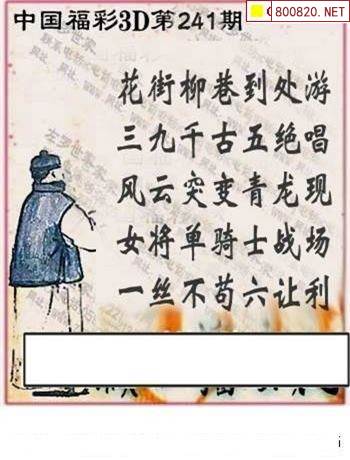 中国福彩3D第241期
800820.NET
花街柳巷到处游
三九千古五绝唱
风云突变青龙现
女将单骑士战场
一丝不苟六让利